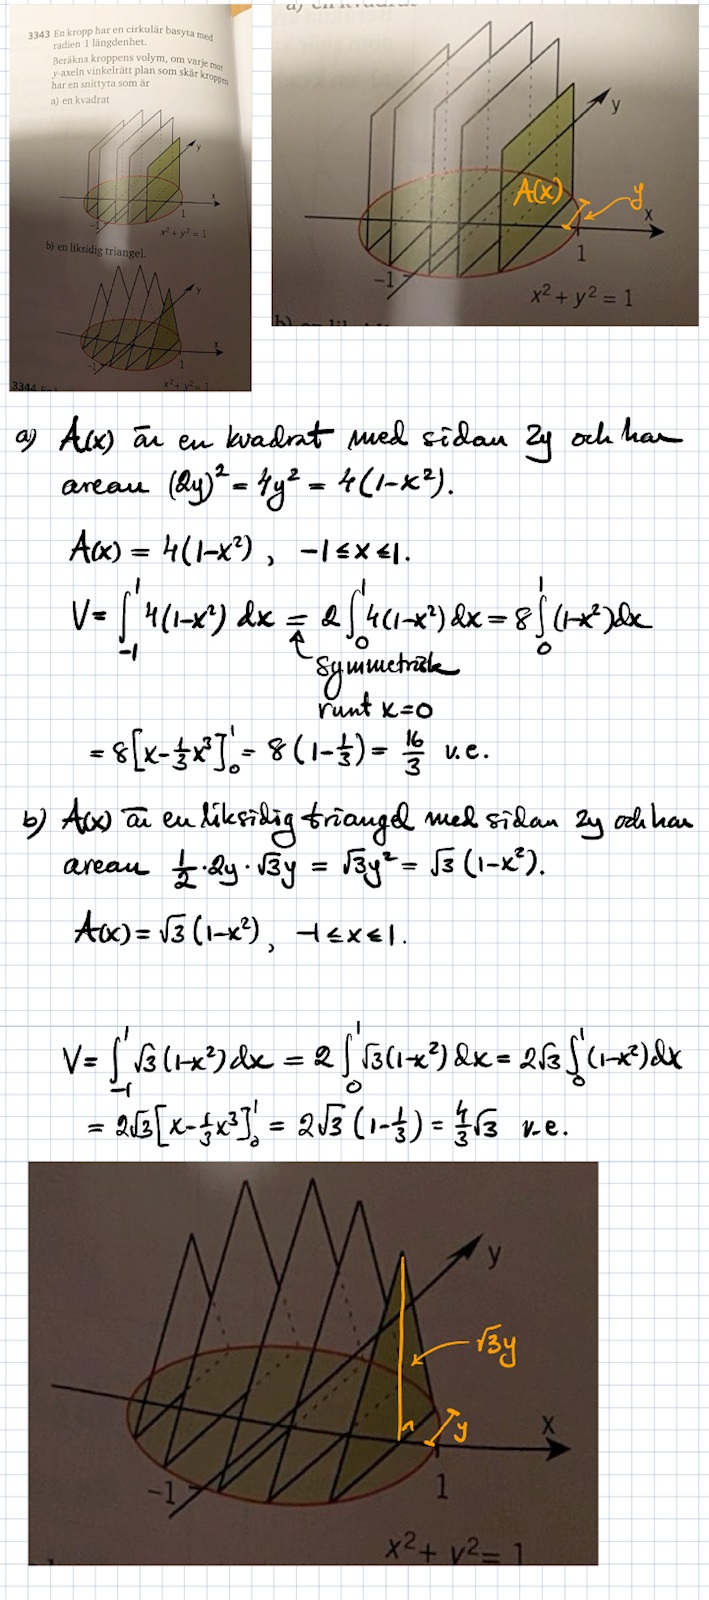 3343 En kropp har en cirkulär basyta med
radien 1 längdenhet.
Beräkna kroppens volym, om varje mot
y-axeln vinkelrätt plan som skär kroppen
har en snittyta som är
a) en kvadrat
y
x
-1
1
x² + y² = 1
b) en liksidig triangel.
y
x
-1
1
x² + y² = 1
3344
y
A(x)
y
x
-1
1
x² + y² = 1
a) A(x) är en kvadrat med sidan 2y och har
arean (2y)² = 4y² = 4(1-x²).
A(x) = 4(1-x²), -1≤x≤1.
V = ∫₋₁¹ 4(1-x²) dx = 2∫₀¹ 4(1-x²) dx = 8∫₀¹ (1-x²) dx
symmetrisk
runt x=0
= 8[x-⅓x³]₀¹ = 8(1-⅓) = 16/3 v.e.
b) A(x) är en liksidig triangel med sidan 2y och har
arean ½·2y·√3y = √3y² = √3(1-x²).
A(x) = √3(1-x²), -1≤x≤1.
V = ∫₋₁¹ √3(1-x²) dx = 2∫₀¹ √3(1-x²) dx = 2√3∫₀¹ (1-x²) dx
= 2√3[x-⅓x³]₀¹ = 2√3(1-⅓) = 4/3√3 v.e.
y
√3y
y
x
-1
1
x² + y² = 1